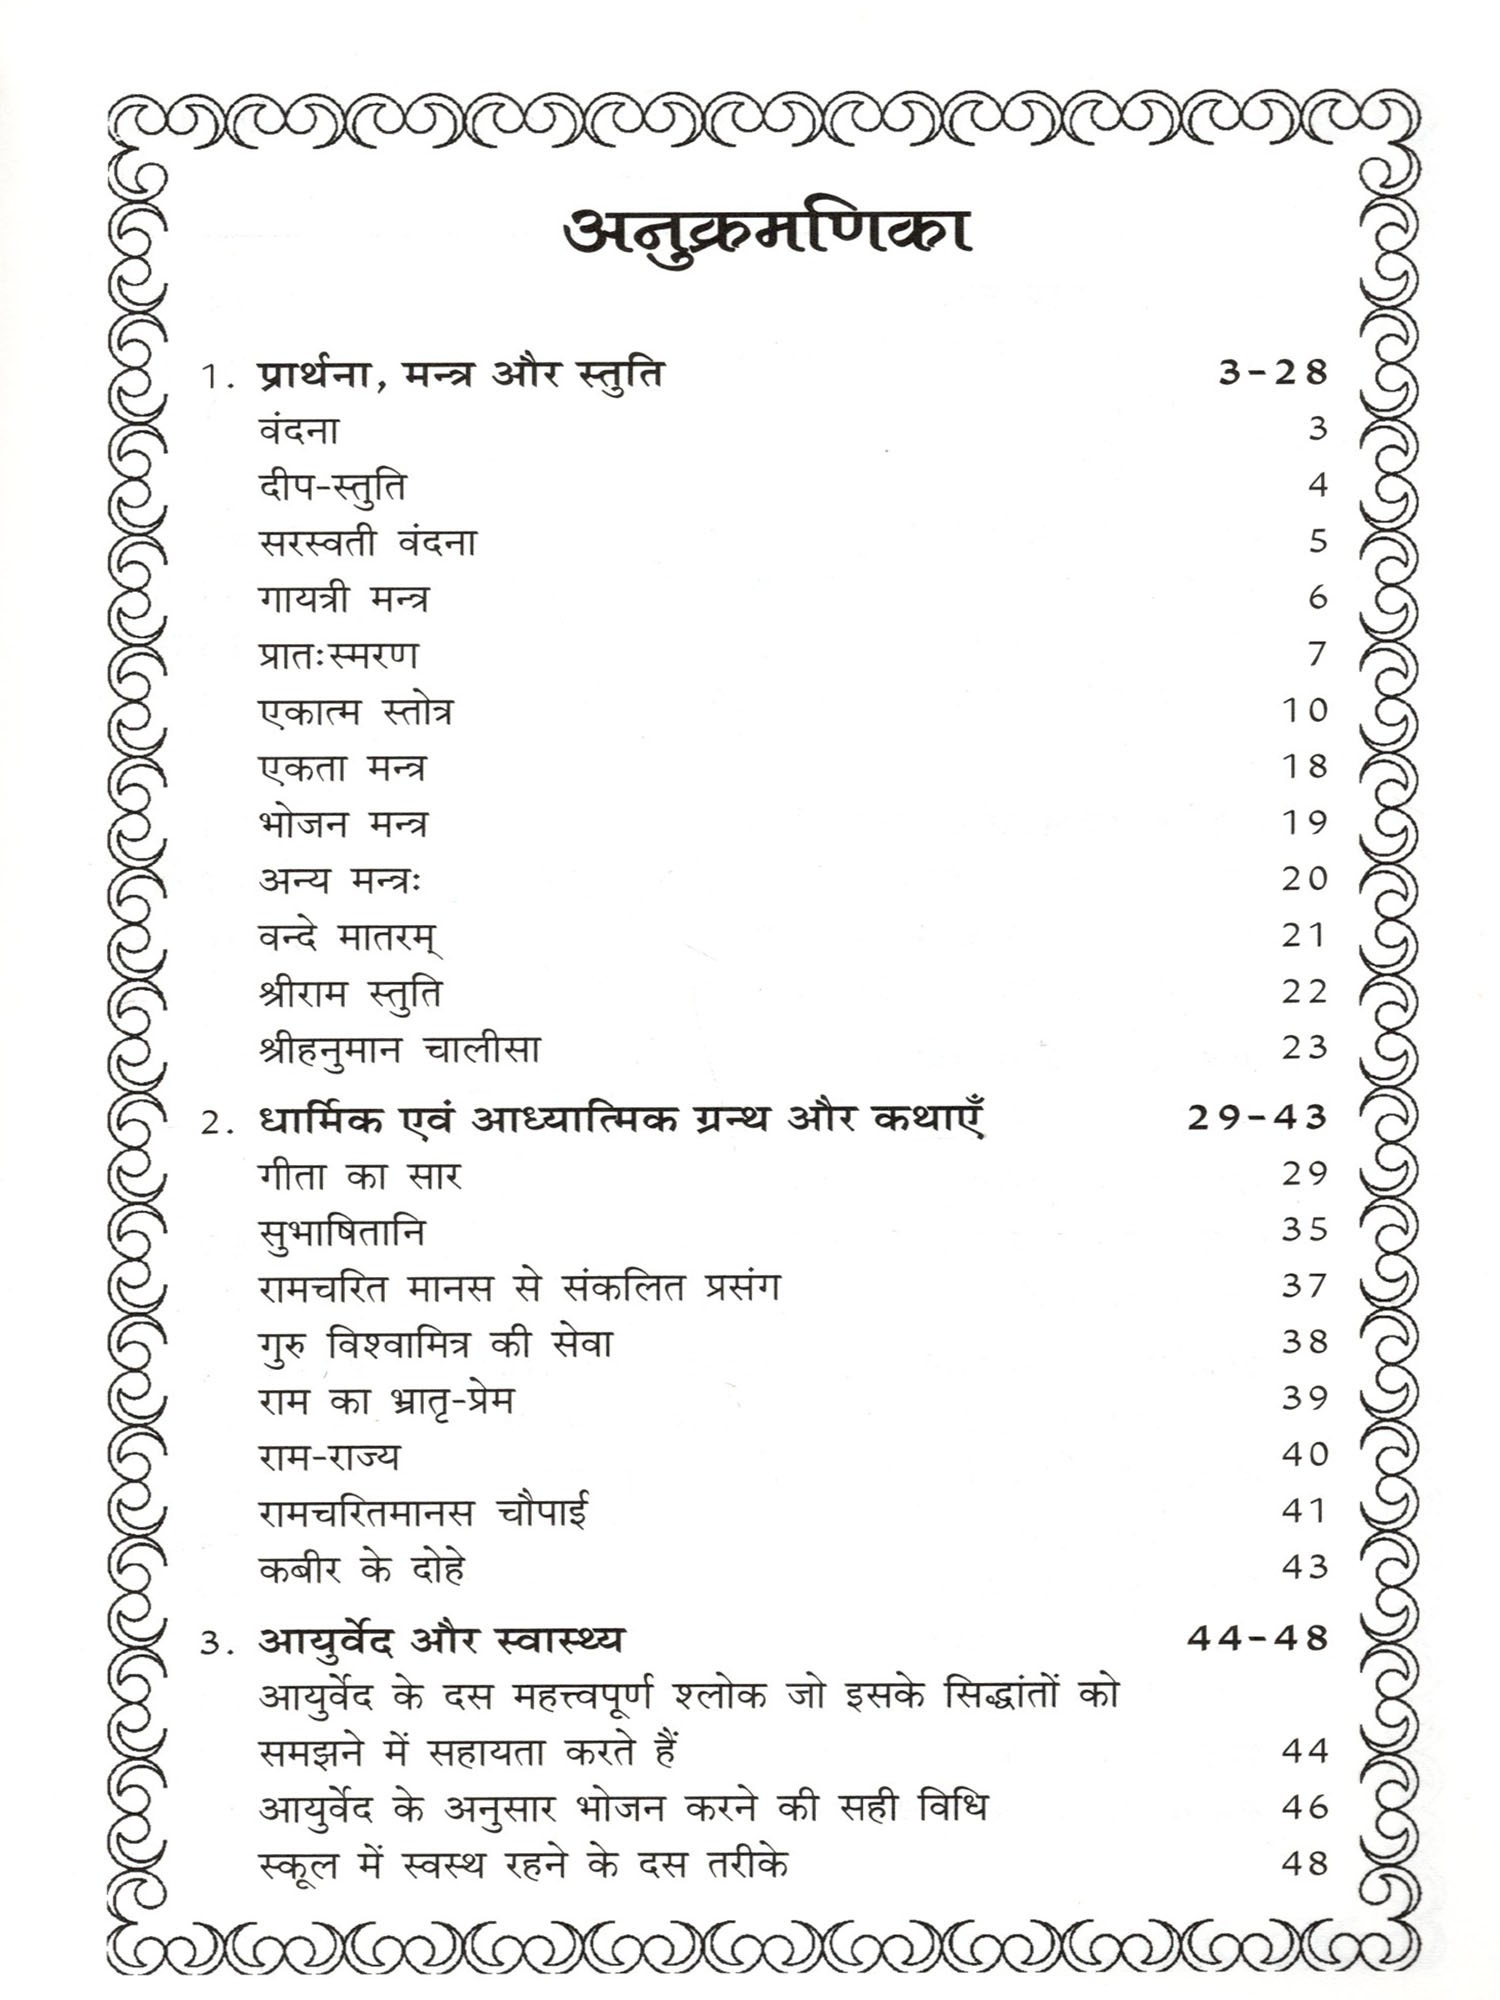 अनुक्रमणिका
1. प्रार्थना, मन्त्र और स्तुति 3-28
वंदना 3
दीप-स्तुति 4
सरस्वती वंदना 5
गायत्री मन्त्र 6
प्रातःस्मरण 7
एकात्म स्तोत्र 10
एकता मन्त्र 18
भोजन मन्त्र 19
अन्य मन्त्रः 20
वन्दे मातरम् 21
श्रीराम स्तुति 22
श्रीहनुमान चालीसा 23
2. धार्मिक एवं आध्यात्मिक ग्रन्थ और कथाएँ 29-43
गीता का सार 29
सुभाषितानि 35
रामचरित मानस से संकलित प्रसंग 37
गुरु विश्वामित्र की सेवा 38
राम का भ्रातृ-प्रेम 39
राम-राज्य 40
रामचरितमानस चौपाई 41
कबीर के दोहे 43
3. आयुर्वेद और स्वास्थ्य 44-48
आयुर्वेद के दस महत्त्वपूर्ण श्लोक जो इसके सिद्धांतों को
समझने में सहायता करते हैं 44
आयुर्वेद के अनुसार भोजन करने की सही विधि 46
स्कूल में स्वस्थ रहने के दस तरीके 48